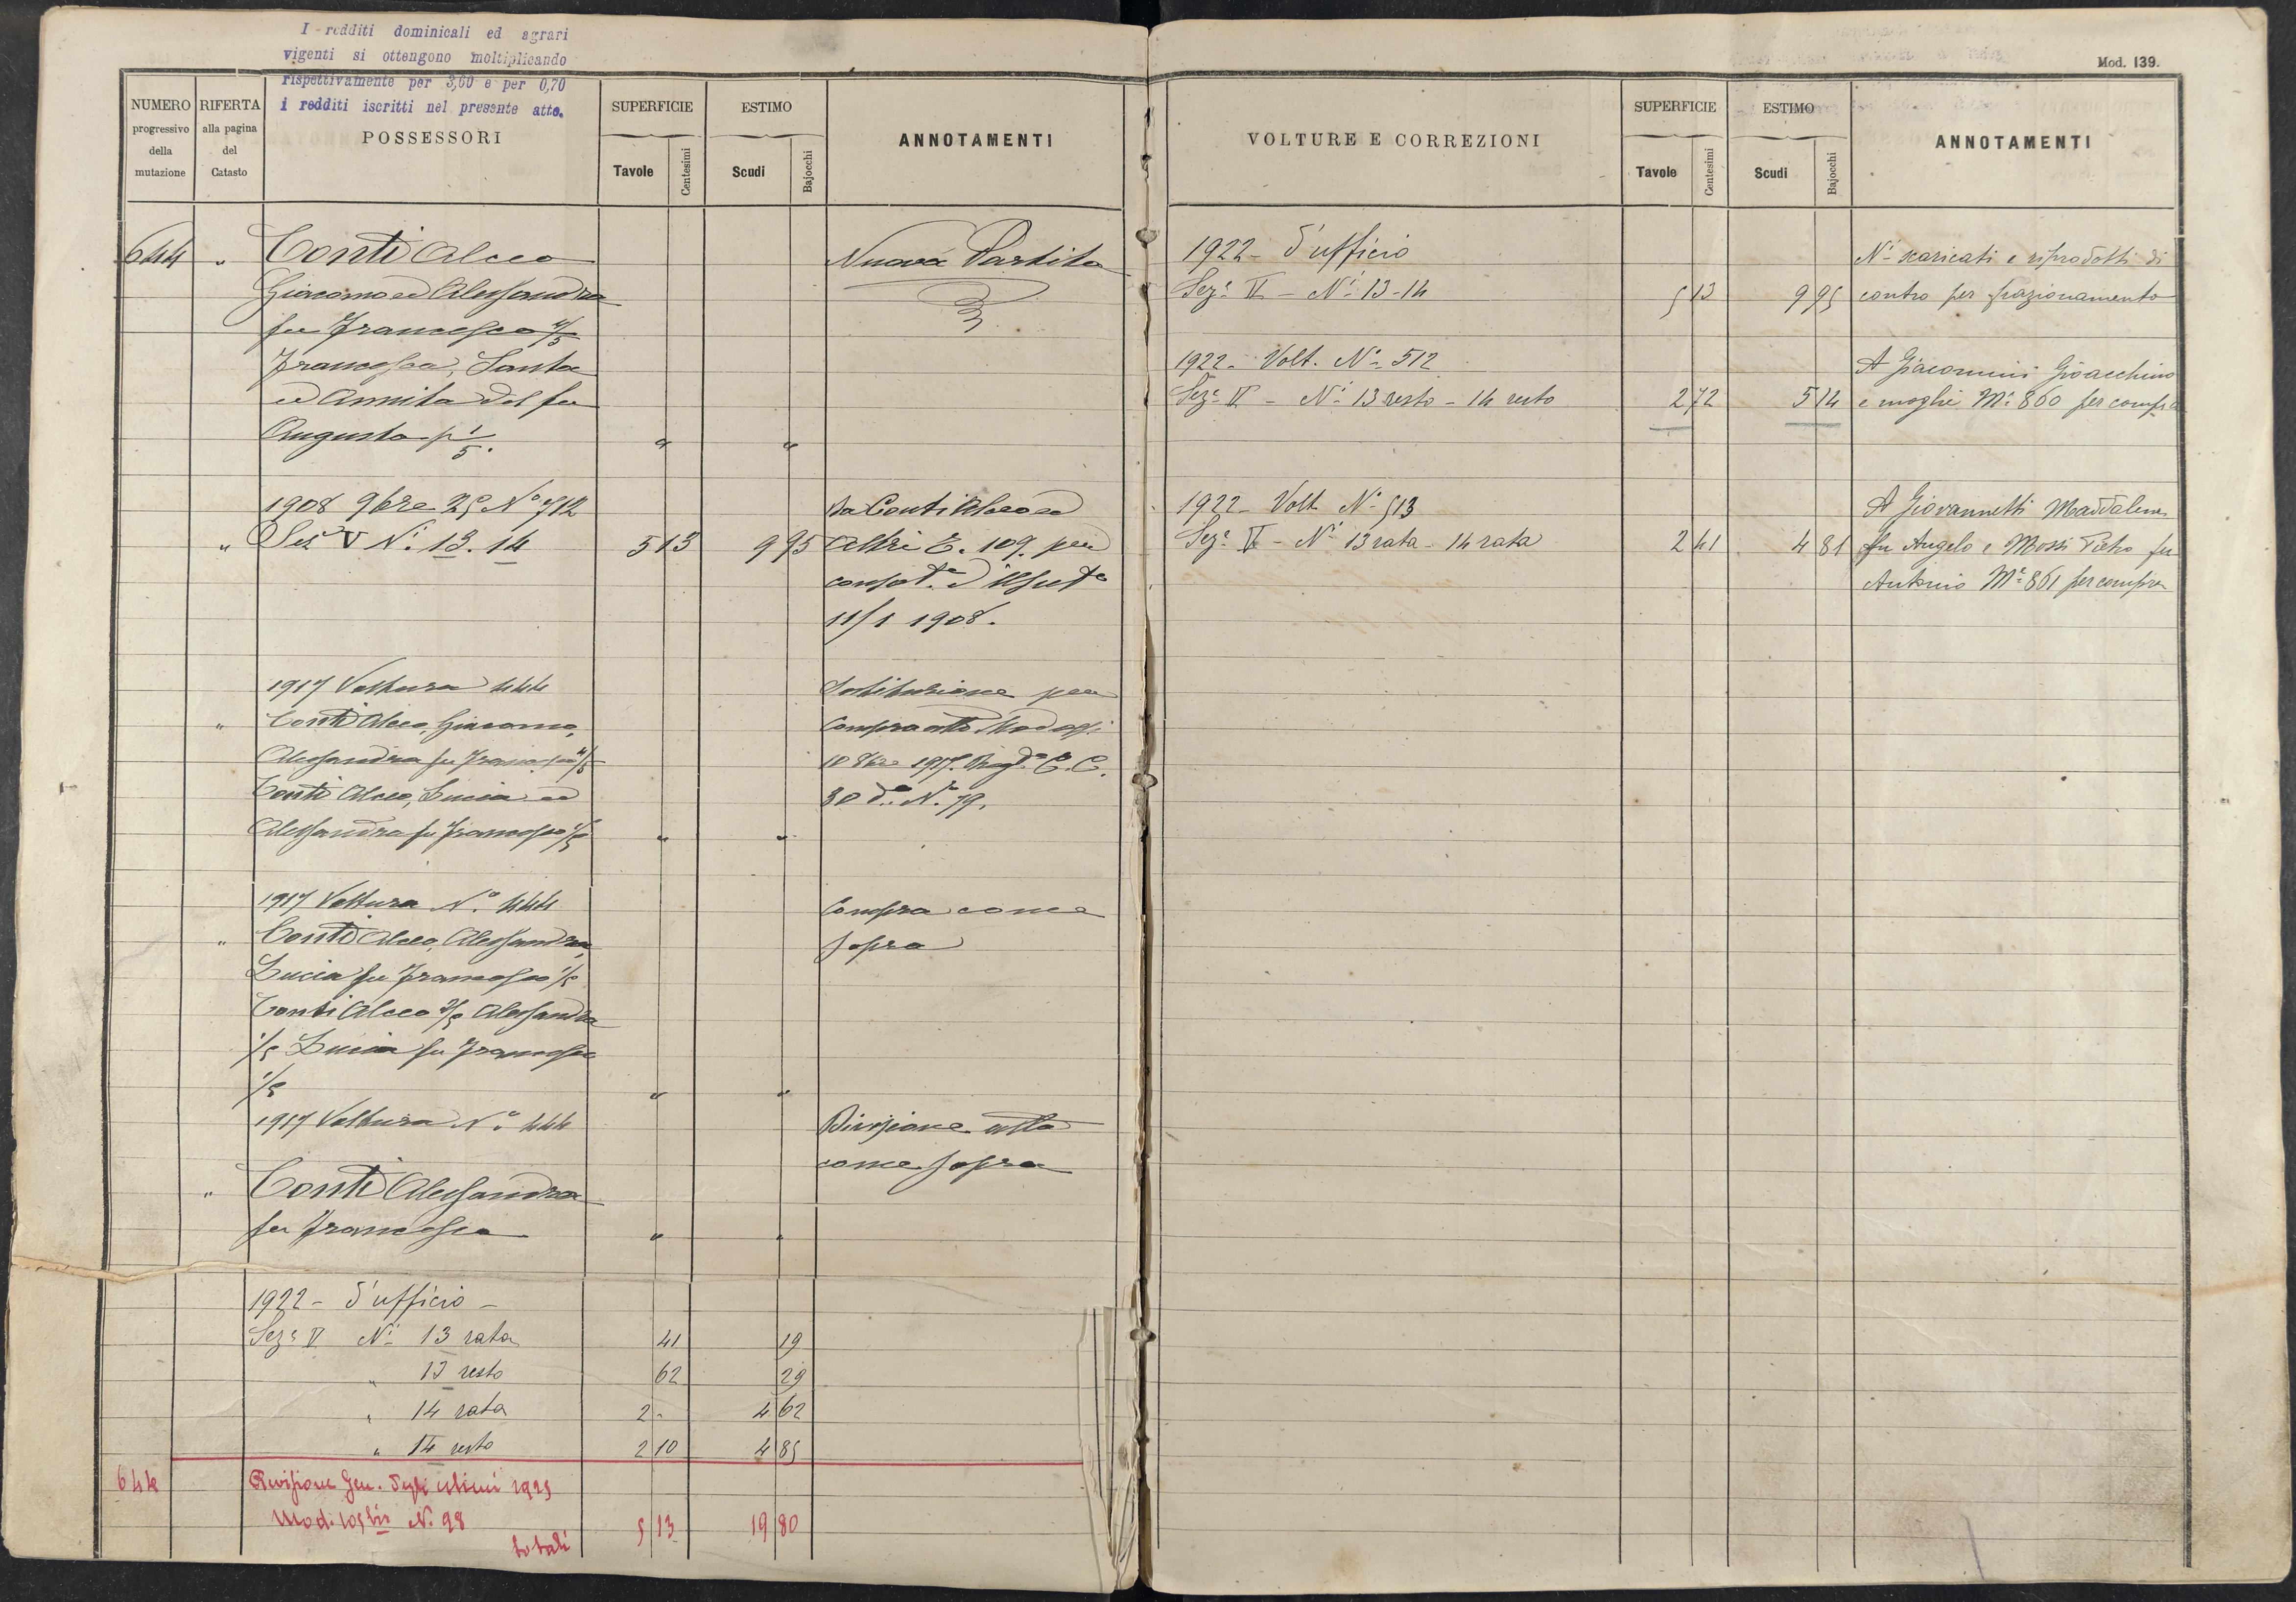 I redditi dominicali ed agrari
vigenti si ottengono moltiplicando
rispettivamente per 3,60 e per 0,70
i redditi iscritti nel presente atto.
NUMERO
progressivo
della
mutazione
RIFERTA
alla pagina
del
Catasto
POSSESSORI
SUPERFICIE
Tavole
Centesimi
ESTIMO
Scudi
Bajocchi
ANNOTAMENTI
644 " Conti Alceo
Giacomo ed Alessandra
fu Francesco 4/5
Francesca, Santa
ed Annita del fu
Augusto p 1/5. " "
Nuova Partita
1908 9bre 25 N° 712
" Sez V N. 13. 14 5 13 9 95
Da Conti Alceo ed
Altri E. 109. per
consol.e d'Usuf.to
11/1 1908.
1917 Voltura 444
" Conti Alceo, Giacomo,
Alessandra fu Francesco 4/5
Conti Alceo, Lucia ed
Alessandra fu Francesco 1/5 " "
Sostituzione per
Compra atto
30 d.o N. 79.
1917 Voltura N.° 444
" Conti Alceo, Alessandra,
Lucia fu Francesco 1/5
Conti Alceo 2/5 Alessandra
1/5 Lucia fu Francesco
1/5 " "
Compra come
sopra
1917 Voltura N.° 444
" Conti Alessandra
fu Francesco " "
Divisione atto
come sopra
1922 - d'ufficio -
Sez.e V N.i 13 rata 41 19
" 13 resto 62 29
" 14 rata 2 - 4 62
" 14 resto 2 10 4 85
644 Revisione Gen. degli estimi 1925
Mod. 105 bis N. 98
totali 5 13 19 80
Mod. 139.
VOLTURE E CORREZIONI
SUPERFICIE
Tavole
Centesimi
ESTIMO
Scudi
Bajocchi
ANNOTAMENTI
1922 - d'ufficio
Sez.e V - N.i 13-14 5 13 9 95
N.i scaricati e riprodotti di
contro per frazionamento
1922 - Volt. N.° 512
Sez.e V - N.i 13 resto - 14 resto 2 72 5 14
A Giacomini Gioacchino
e moglie M.e 860 per compra
1922 - Volt N.° 513
Sez.e V - N.i 13 rata - 14 rata 2 41 4 81
A Giovannetti Maddalena
fu Angelo e Mossi Pietro fu
Antonio M.e 861 per compra